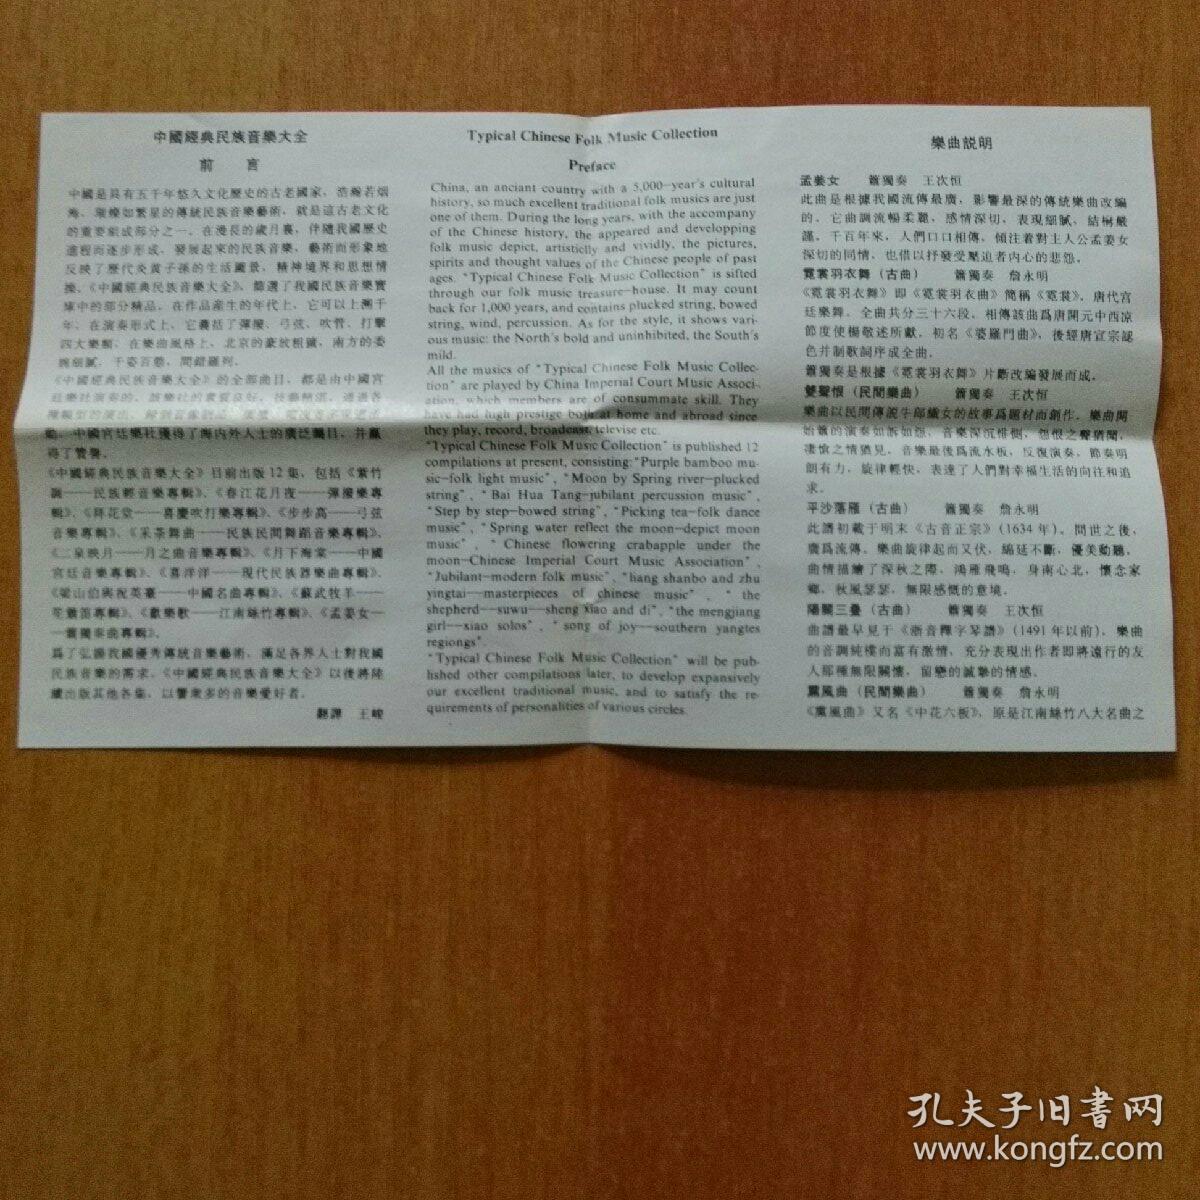 中國經典民族音樂大全
前 言
中國是具有五千年悠久文化歷史的古老國家，浩瀚若烟
海、璀璨如繁星的傳統民族音樂藝術，就是這古老文化
的重要組成部分之一。在漫長的歲月裏，伴隨我國歷史
進程而逐步形成、發展起來的民族音樂，藝術而形象地
反映了歷代炎黃子孫的生活圖景，精神境界和思想情
操。《中國經典民族音樂大全》，篩選了我國民族音樂寶
庫中的部分精品。在作品產生的年代上，它可以上溯千
年；在演奏形式上，它囊括了彈撥、弓弦、吹管、打擊
四大樂類；在樂曲風格上，北京的豪放粗獷，南方的委
婉細膩，千姿百態，間錯羅列。
《中國經典民族音樂大全》的全部曲目，都是由中國宮
廷樂社演奏的。該樂社的素質良好，技藝精湛，通過各
中國宮廷樂社獲得了海内外人士的廣泛矚目，并贏
得了贊譽。
《中國經典民族音樂大全》目前出版12集，包括《紫竹
調——民族輕音樂專輯》、《春江花月夜——彈撥樂專
輯》、《拜花堂——喜慶吹打樂專輯》、《步步高——弓弦
音樂專輯》、《采茶舞曲——民族民間舞蹈音樂專輯》、
《二泉映月——月之曲音樂專輯》、《月下海棠——中國
宮廷音樂專輯》、《喜洋洋——現代民族器樂曲專輯》、
《梁山伯與祝英臺——中國名曲專輯》、《蘇武牧羊——
笙簫笛專輯》、《歡樂歌——江南絲竹專輯》、《孟姜女—
—簫獨奏曲專輯》。
爲了弘揚我國優秀傳統音樂藝術，滿足各界人士對我國
民族音樂的需求，《中國經典民族音樂大全》以後將陸
續出版其他各集，以饗衆多的音樂愛好者。
翻譯 王峻
Typical Chinese Folk Music Collection
Preface
China, an anciant country with a 5,000-year's cultural
history, so much excellent traditional folk musics are just
one of them. During the long years, with the accompany
of the Chinese history, the appeared and developping
folk music depict, artisticlly and vividly, the pictures,
spirits and thought values of the Chinese people of past
ages. "Typical Chinese Folk Music Collection" is sifted
through our folk music treasure-house. It may count
back for 1,000 years, and contains plucked string, bowed
string, wind, percussion. As for the style, it shows vari-
ous music: the North's bold and uninhibited, the South's
mild.
All the musics of "Typical Chinese Folk Music Collec-
tion" are played by China Imperial Court Music Associ-
ation, which members are of consummate skill. They
have had high prestige both at home and abroad since
they play, record, broadcast, televise etc.
"Typical Chinese Folk Music Collection" is published 12
compilations at present, consisting: "Purple bamboo mu-
sic-folk light music", "Moon by Spring river-plucked
string", "Bai Hua Tang-jubilant percussion music",
"Step by step-bowed string", "Picking tea-folk dance
music", "Spring water reflect the moon-depict moon
music", "Chinese flowering crabapple under the
moon-Chinese Imperial Court Music Association",
"Jubilant-modern folk music", "liang shanbo and zhu
yingtai—masterpieces of chinese music", "the
shepherd--suwu--sheng xiao and di", "the mengjiang
girl--xiao solos", "song of joy--southern yangtes
regiongs".
"Typical Chinese Folk Music Collection" will be pub-
lished other compilations later, to develop expansively
our excellent traditional music, and to satisfy the re-
quirements of personalities of various circles.
樂曲説明
孟姜女 簫獨奏 王次恒
此曲是根據我國流傳最廣，影響最深的傳統樂曲改編
的。它曲調流暢柔麗，感情深切，表現細膩，結構嚴
謹。千百年來，人們口口相傳，傾注着對主人公孟姜女
深切的同情，也借以抒發受壓迫者内心的悲怨。
霓裳羽衣舞（古曲） 簫獨奏 詹永明
《霓裳羽衣舞》即《霓裳羽衣曲》簡稱《霓裳》。唐代宮
廷樂舞。全曲共分三十六段，相傳該曲爲唐開元中西凉
節度使楊敬述所獻，初名《婆羅門曲》，後經唐宣宗認
色并制歌詞序成全曲。
簫獨奏是根據《霓裳羽衣舞》片斷改編發展而成。
雙聲恨（民間樂曲） 簫獨奏 王次恒
樂曲以民間傳説牛郎織女的故事爲題材而創作。樂曲開
始簫的演奏如訴如怨，音樂深沉悱惻，怨恨之聲猶聞，
凄愴之情猶見，音樂最後爲流水板，反復演奏，節奏明
朗有力，旋律輕快，表達了人們對幸福生活的向往和追
求。
平沙落雁（古曲） 簫獨奏 詹永明
此譜初載于明末《古音正宗》（1634年）。問世之後，
廣爲流傳。樂曲旋律起而又伏，綿延不斷，優美動聽，
曲情描繪了深秋之際，鴻雁飛鳴，身南心北，懷念家
鄉，秋風瑟瑟，無限感慨的意境。
陽關三疊（古曲） 簫獨奏 王次恒
曲譜最早見于《浙音釋字琴譜》（1491年以前），樂曲
的音調純樸而富有激情，充分表現出作者即將遠行的友
人那種無限關懷，留戀的誠摯的情感。
薰風曲（民間樂曲） 簫獨奏 詹永明
《薰風曲》又名《中花六板》，原是江南絲竹八大名曲之
孔夫子旧書网
www.kongfz.com